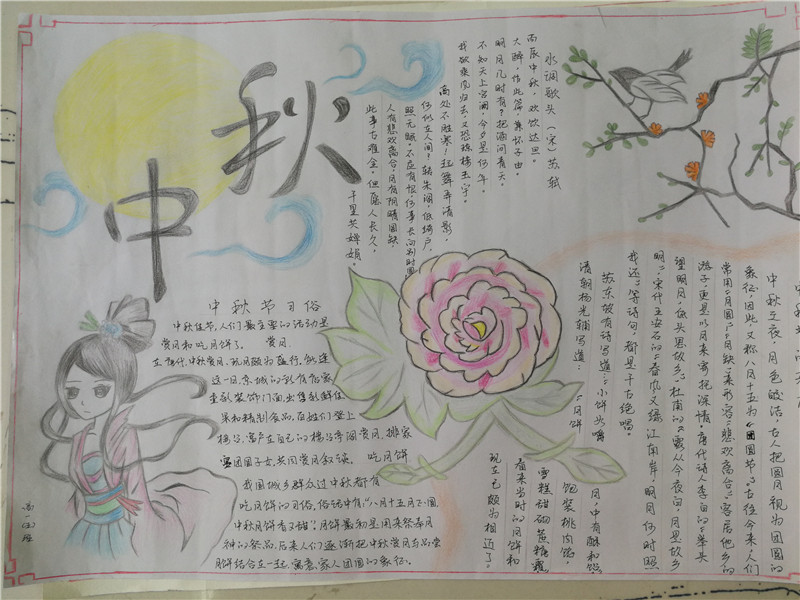 中秋
水调歌头（宋）苏轼
丙辰中秋，欢饮达旦。
大醉，作此篇兼怀子由。
明月几时有？把酒问青天。
不知天上宫阙，今夕是何年。
我欲乘风归去，又恐琼楼玉宇，
高处不胜寒！起舞弄清影，
何似在人间？转朱阁，低绮户，
照无眠。不应有恨，何事长向别时圆
人有悲欢离合，月有阴晴圆缺
此事古难全。但愿人长久，
千里共婵娟。
中秋节习俗
中秋佳节，人们最主要的活动是
赏月和吃月饼了。 赏月
在唐代，中秋赏月、玩月颇为盛行。每逢
这一日，京城的所有店家
重新装饰门面，出售新鲜佳
果和精制食品，百姓们登上
楼台，富户在自己的楼台亭阁赏月，排家
宴团圆子女，共同赏月叙谈。 吃月饼
我国城乡群众过中秋都有
吃月饼的习俗，俗话中有："八月十五月正圆
中秋月饼香又甜"。月饼最初是用来祭奉月
神的祭品，后来人们逐渐把中秋赏月与品尝
月饼结合在一起，寓意家人团圆的象征。
中秋
中秋之夜，月色皎洁，古人把圆月视为团圆的
象征，因此，又称八月十五为"团圆节"。古往今来，人们
常用"月圆""月缺"来形容"悲欢离合"，客居他乡的
游子，更是以月来寄托深情。唐代诗人李白的"举头
望明月，低头思故乡"，杜甫的"露从今夜白，月是故乡
明"，宋代王安石的"春风又绿江南岸，明月何时照
我还"等诗句，都是千古绝唱。
苏东坡有诗写道："小饼如嚼
月，中有酥和饴
清朝杨光辅写道："月饼
饱装桃肉馅，
雪糕甜砌蔗糖霜
看来当时的月饼和
现在已颇为相近了。